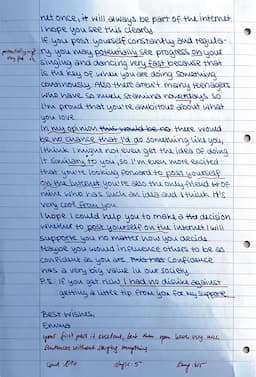 not once, it will always be part of the internet.
I hope you see this clearly.
If you post yourself constantly and regula-
ry you may potentially see progress on your
singing and dancing very fast because that
is the key of when you are doing something
continously. Also there aren't many teenagers
who have so much stamina nowerdays so
I'm proud that you're ambitious about what
you love.
In my opinion this would be no there would
be no chance that I'd do something like you
think I might not even get the idea of doing
it similary to you, so I'm even more excited
that you're looking forward to post yourself
on the internet. You're also the only friend of
mine who has such an idea and I think it's
very cool from you.
I hope I could help you to make a decision
whether to post yourself on the Internet. I will
supporte you no matter how you decide.
Maybe you would influence others to be as
confident as you are. Confidence
has a very big value in our society.
P.S. If you get rich I had no dislike against
getting a little tip from you for my support.
Best wishes,
Emma
your first part is excellent, but then you have very nice
sentences without saying anything